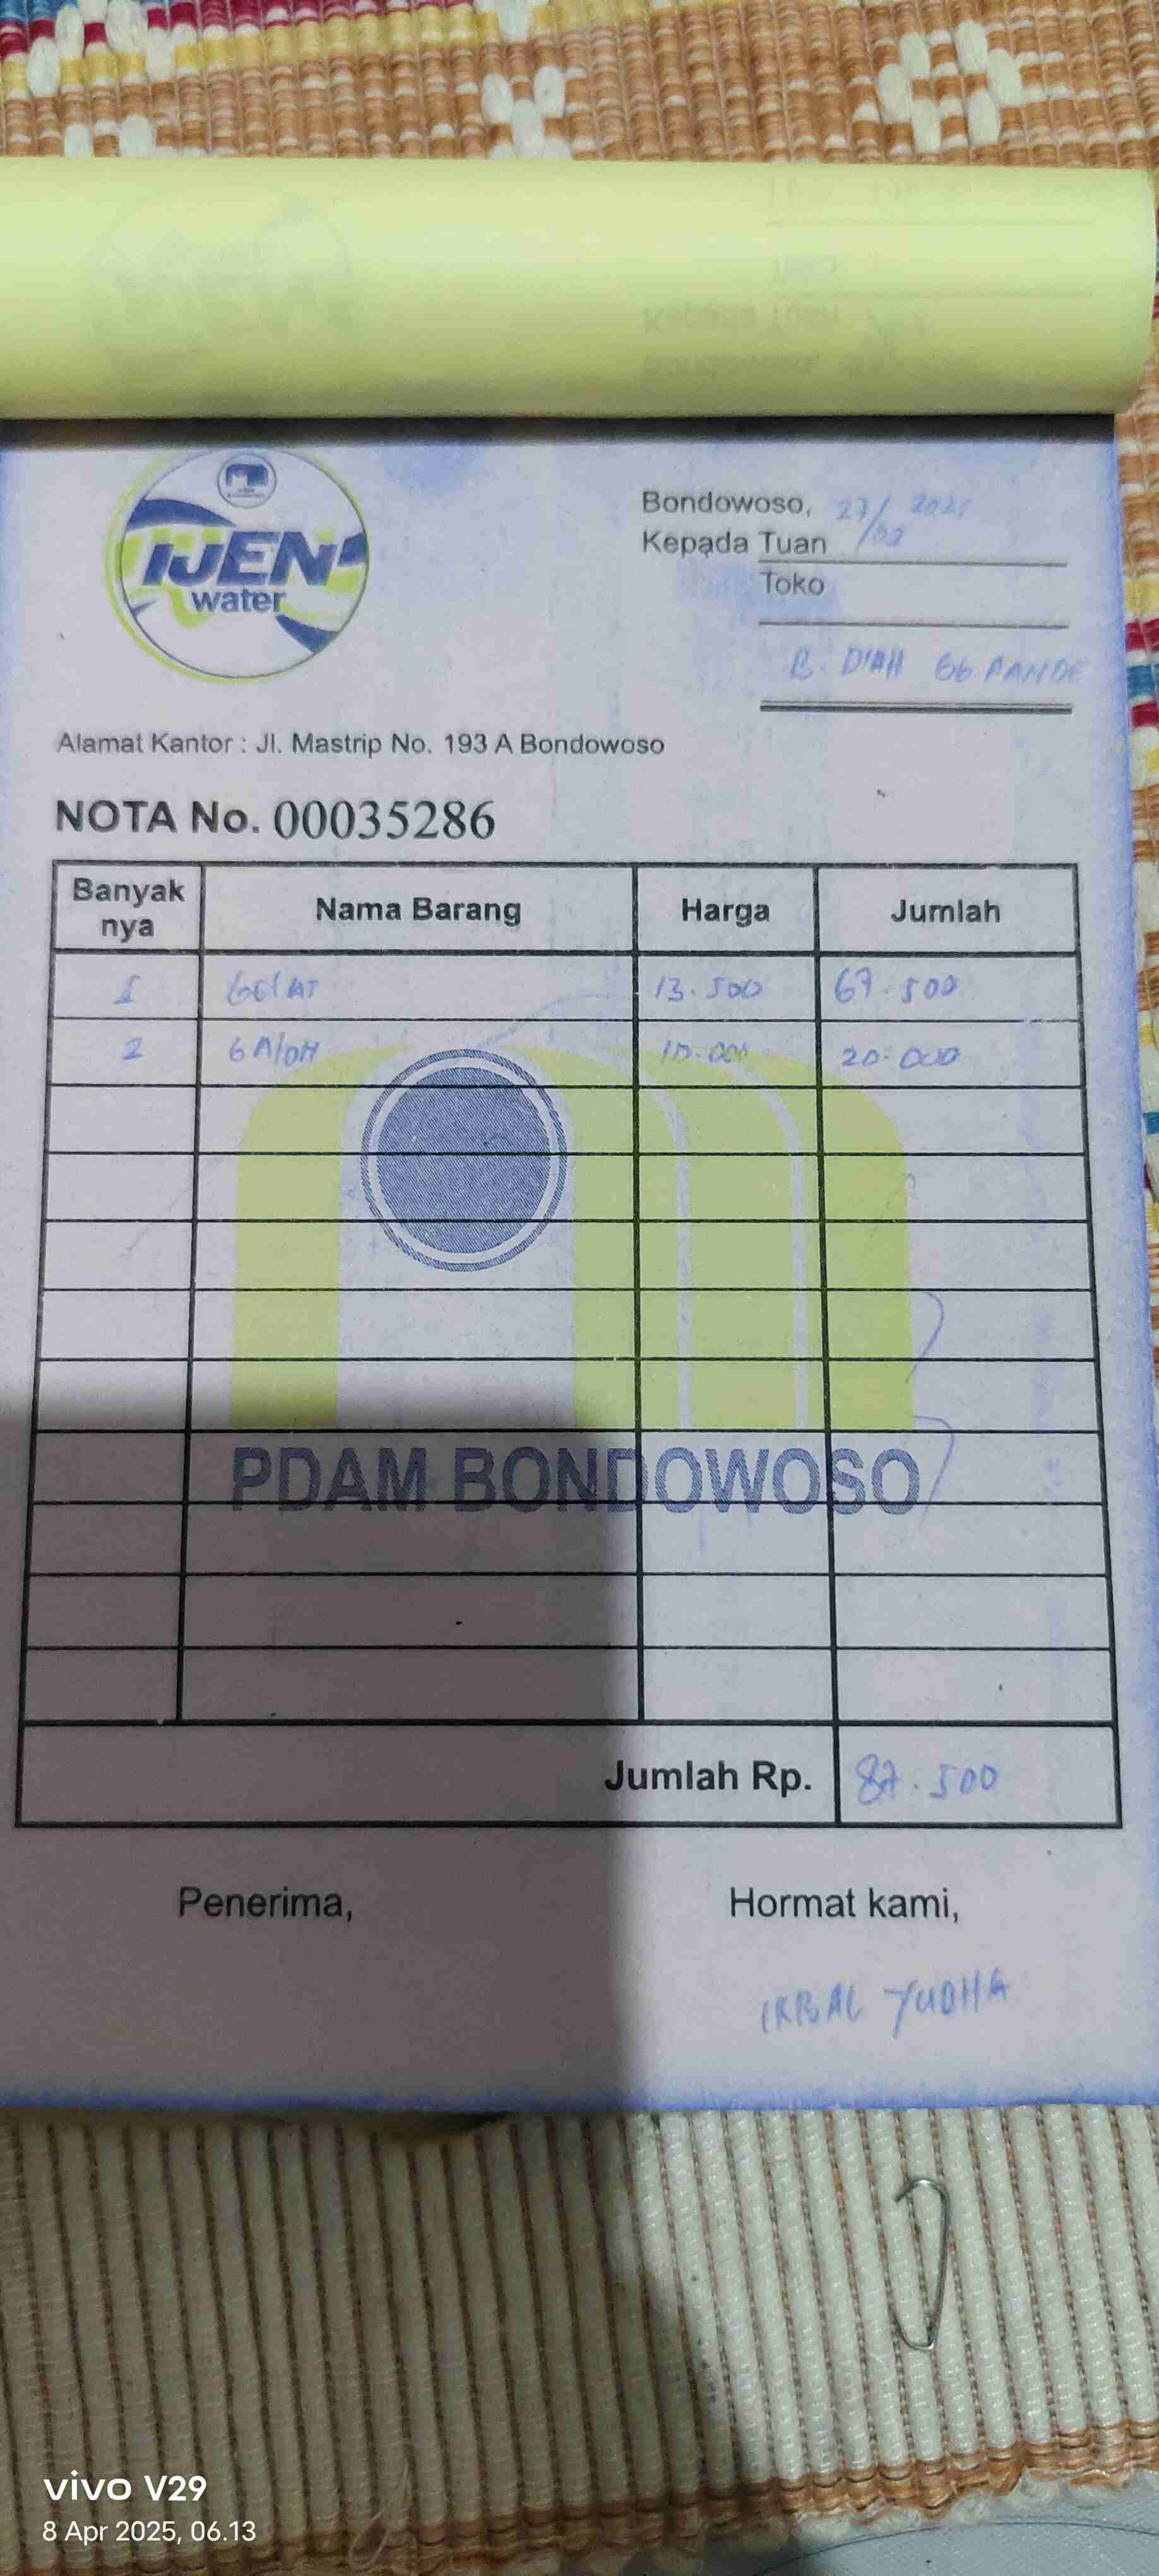 IJEN
water
Bondowoso, 27/02 2025
Kepada Tuan
Toko
B. DIAH GG. PANDE
Alamat Kantor : Jl. Mastrip No. 193 A Bondowoso
NOTA No. 00035286
Banyak nya Nama Barang Harga Jumlah
5 GELAS 13.500 67.500
2 10.000 20.000
PDAM BONDOWOSO
Jumlah Rp. 87.500
Penerima, Hormat kami,
YUDHA
vivo V29
8 Apr 2025, 06.13